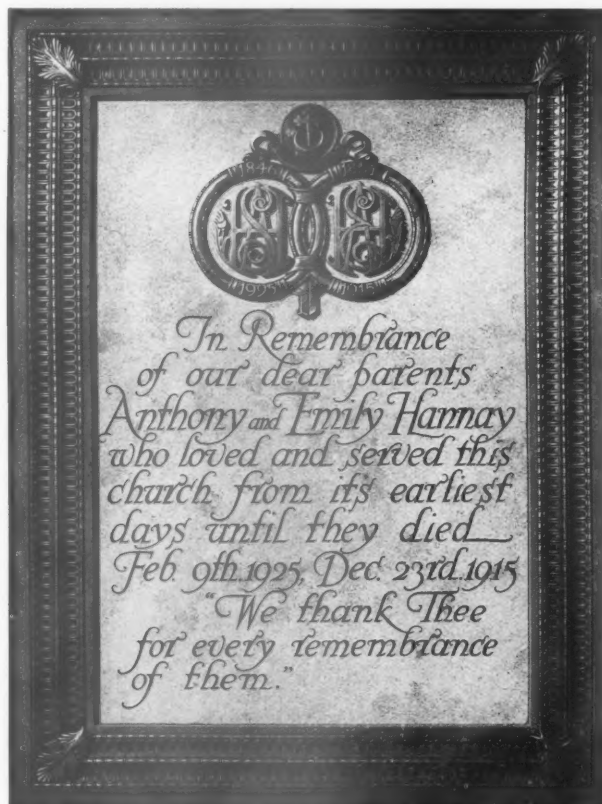 184
1925 1915
In Remembrance
of our dear parents
Anthony and Emily Hannay
who loved and served this
church from its earliest
days until they died
Feb. 9th. 1925, Dec. 23rd. 1915
"We thank Thee
for every remembrance
of them."